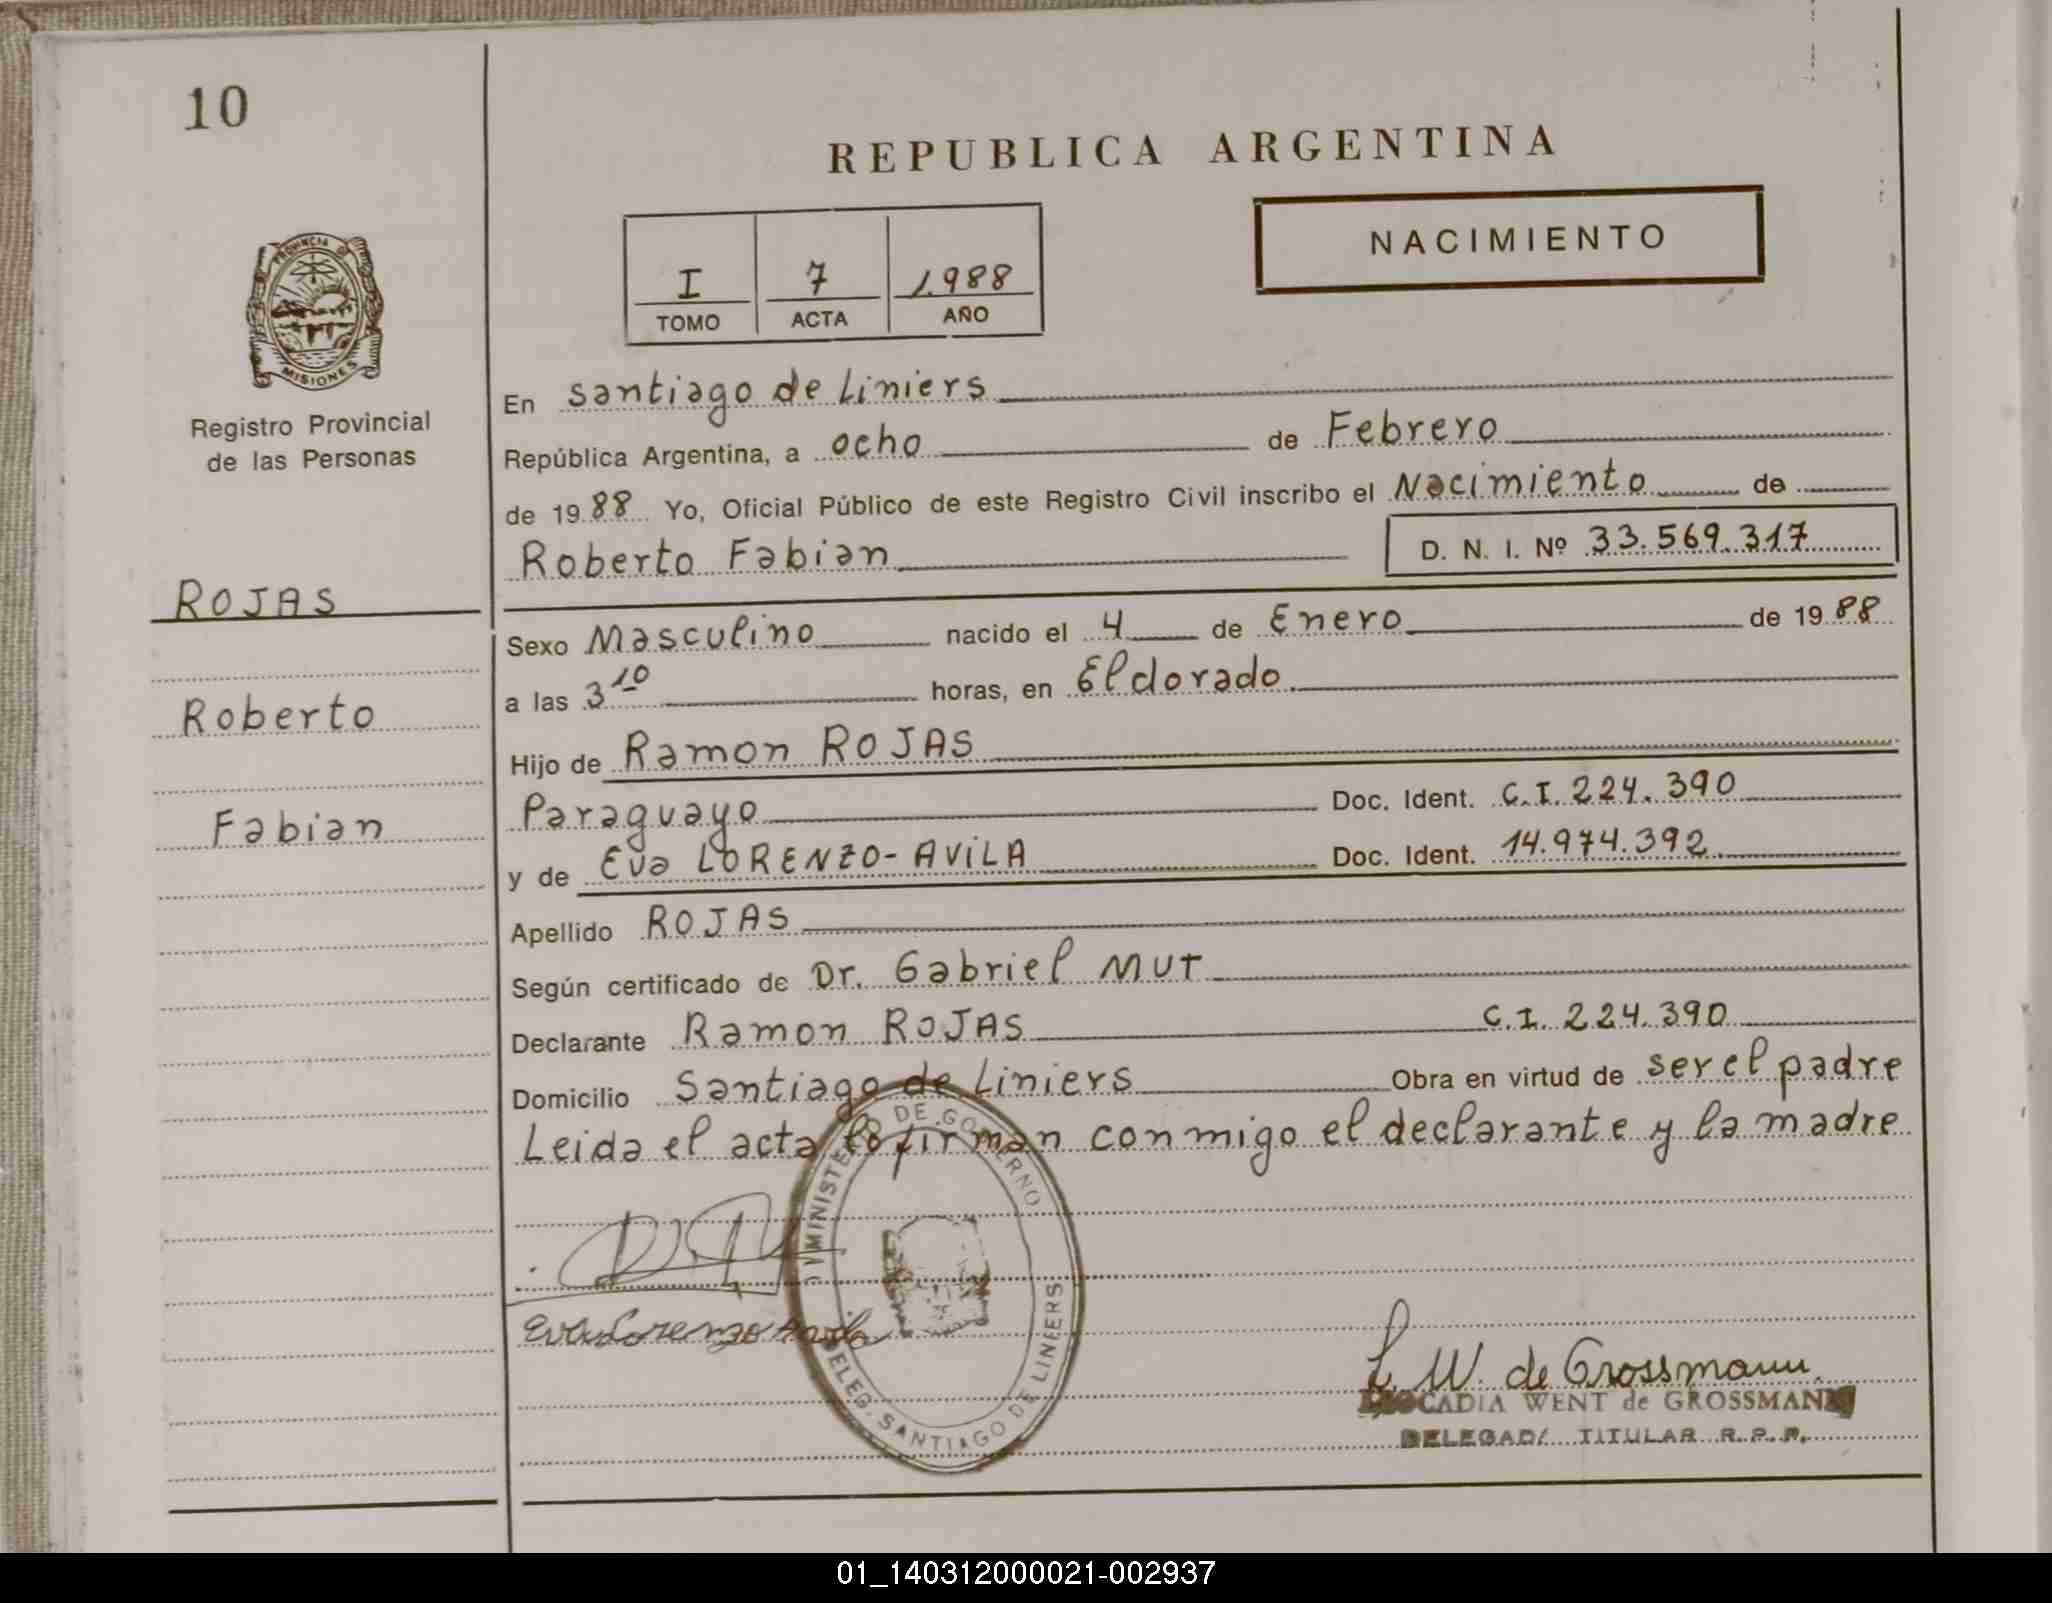 10
REPUBLICA ARGENTINA
NACIMIENTO
I 7 1.988
TOMO ACTA AÑO
PROVINCIA DE
MISIONES
Registro Provincial
de las Personas
ROJAS
Roberto
Fabian
En Santiago de Liniers
República Argentina, a ocho de Febrero
de 19 88 Yo, Oficial Público de este Registro Civil inscribo el Nacimiento de
Roberto Fabian D. N. I. Nº 33.569.317
Sexo Masculino nacido el 4 de Enero de 19 88
a las 3 10 horas, en Eldorado
Hijo de Ramon ROJAS
Paraguayo Doc. Ident. C.I. 224.390
y de Eva LORENZO-AVILA Doc. Ident. 14.974.392
Apellido ROJAS
Según certificado de Dr. Gabriel MUT
Declarante Ramon ROJAS C.I. 224.390
Domicilio Santiago de Liniers Obra en virtud de ser el padre
Leida el acta lo firman conmigo el declarante y la madre
MINISTERIO DE GOBIERNO
DELEG. SANTIAGO DE LINIERS
Eva Lorenzo Avila
L. W. de Grossmann
WENT de GROSSMANN
TITULAR R. P. P.
01_140312000021-002937